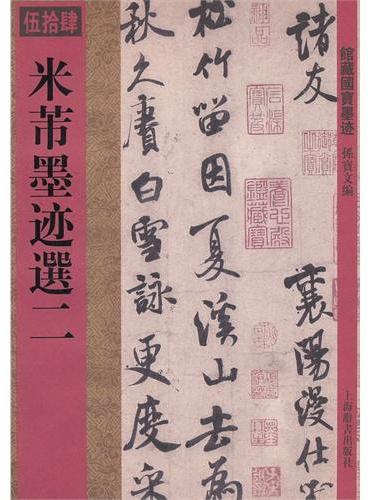 館藏國寶墨迹
孫寶文编
上海辭書出版社
諸友 襄陽漫仕
松竹留因夏溪山去為
秋久賡白雪詠更度采
石渠寶笈
養心殿鑑藏寶
伍拾肆
米芾墨迹選二